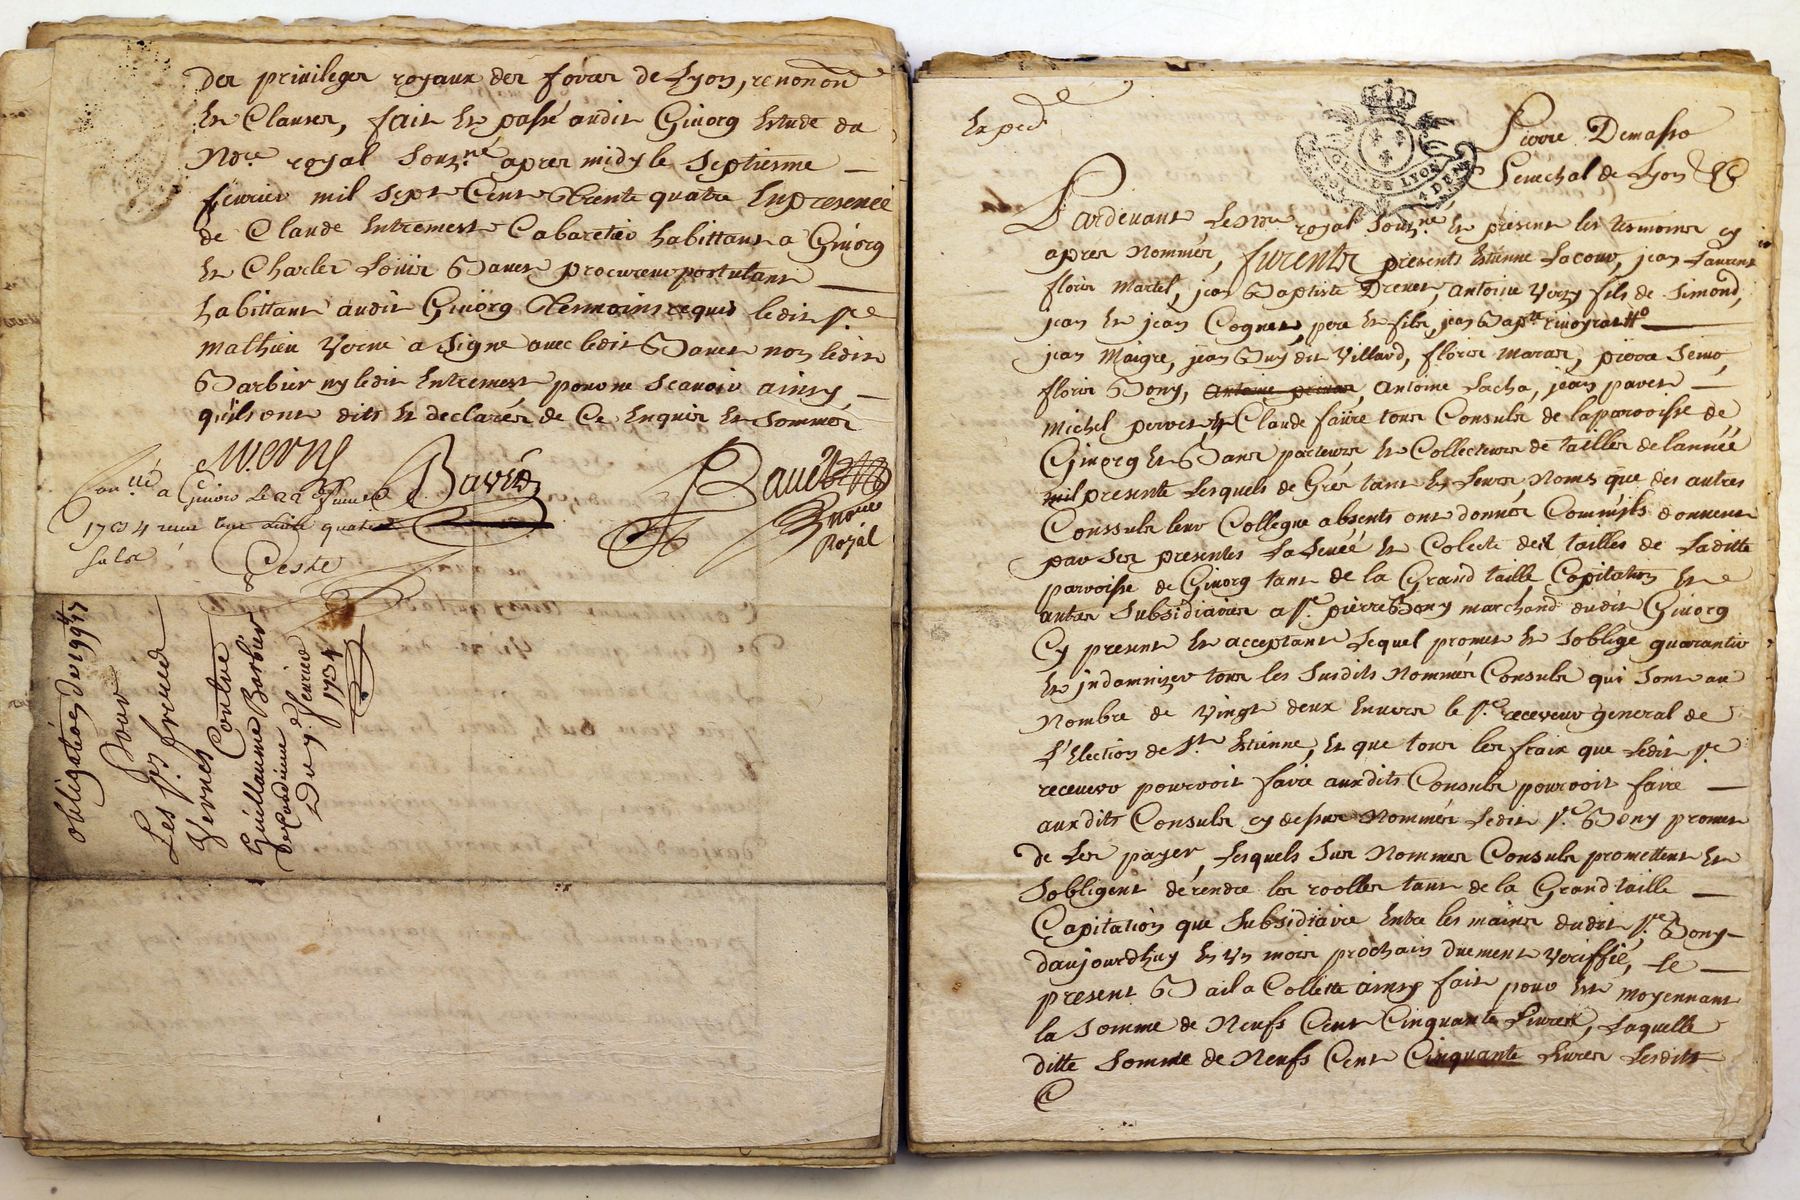 des privileges royaux des foires de Lyon, renonon
et Clauses, fait et passé audit Givorg Estude du
No.re royal Souz.né apres midy le Septiesme
feurier mil sept Cent Trente quatre En presence
de Claude Entremest Cabaretier habittant a Givorg
et Charles Loüis Bauet procureur postulant
habittant audit Givorg Tesmoins requis ledit s.r
Mathieu Verne a Signé avec ledit Bauet non ledit
Barbier ny ledit Entremest pour ne Scauoir ainsy
quils ont dits et declarés de Ce Enquis et Sommés
Bauet
No.re Royal
a Givors Le 22 feurier
1734 receu quatre
Obligation de 199
Pour
Les s.rs freres
Vernes Contre
Guillaume Barbier
Du 7 feurier
1734
Exped.
Pierre Demasso
Senechal de Lyon &C
GEN. DE LYON
Pardeuant Le No.re royal Souz.né et présent les tesmoins cy
apres Nommés, furents presents Estienne Lacour, jean Laurent
floris Martel, jean Baptiste Dreuet, antoine Verzy fils de Simond,
jean et jean Cognet, pere et fils, jean Bap.te
jean Maigre, jean Guy dit Villard, floris maras, pierre Seino,
floris Bony, Antoine Lacha, jean pavet
Michel pervet, et Claude faüre tous Consuls de la parroisse de
Givorg et Bans parteurs et Collecteurs de tailles de lannéé
presente Lesquels de Gres tant En Leurs Noms que des autres
Conssuls leur Collegue absents ont donnés Comm'ils donnent
par Ses presentes La Leuéé et Colecte des tailles de Laditte
parroisse de Givorg tant de la Grand taille, Capitation Et
autres Subsidiaires a s.r pierre Bony marchand dudit Givorg
Cy present et acceptant Lequel promet et Soblige guarantir
et jndamnizer tous les Susdits Nommés Consuls qui Sont au
Nombre de Vingt deux Enuers le s.r receveur general de
l'Election de s.t Estienne, et que tous les fraix que Ledit s.r
receueur pourroit faire auxdits Consuls pourroit faire
aux dits Consuls cy dessus Nommés Ledit s.r Bony promet
de Les payer Lesquels Sus Nommés Consuls promettent et
Sobligent dé rendre les roolles tant de la Grand taille
Capitation que Subsidiaire Entre les mains dudit s.r Bony
daujourdhuy En Un mois prochain duement Veriffié, Le
present Bail a Collette ainsy fait pour Et moyennant
la Somme de Neufs Cent Cinquante Liures, Laquelle
ditte Somme de Neufs Cent Cinquante Liures Lesdits
C